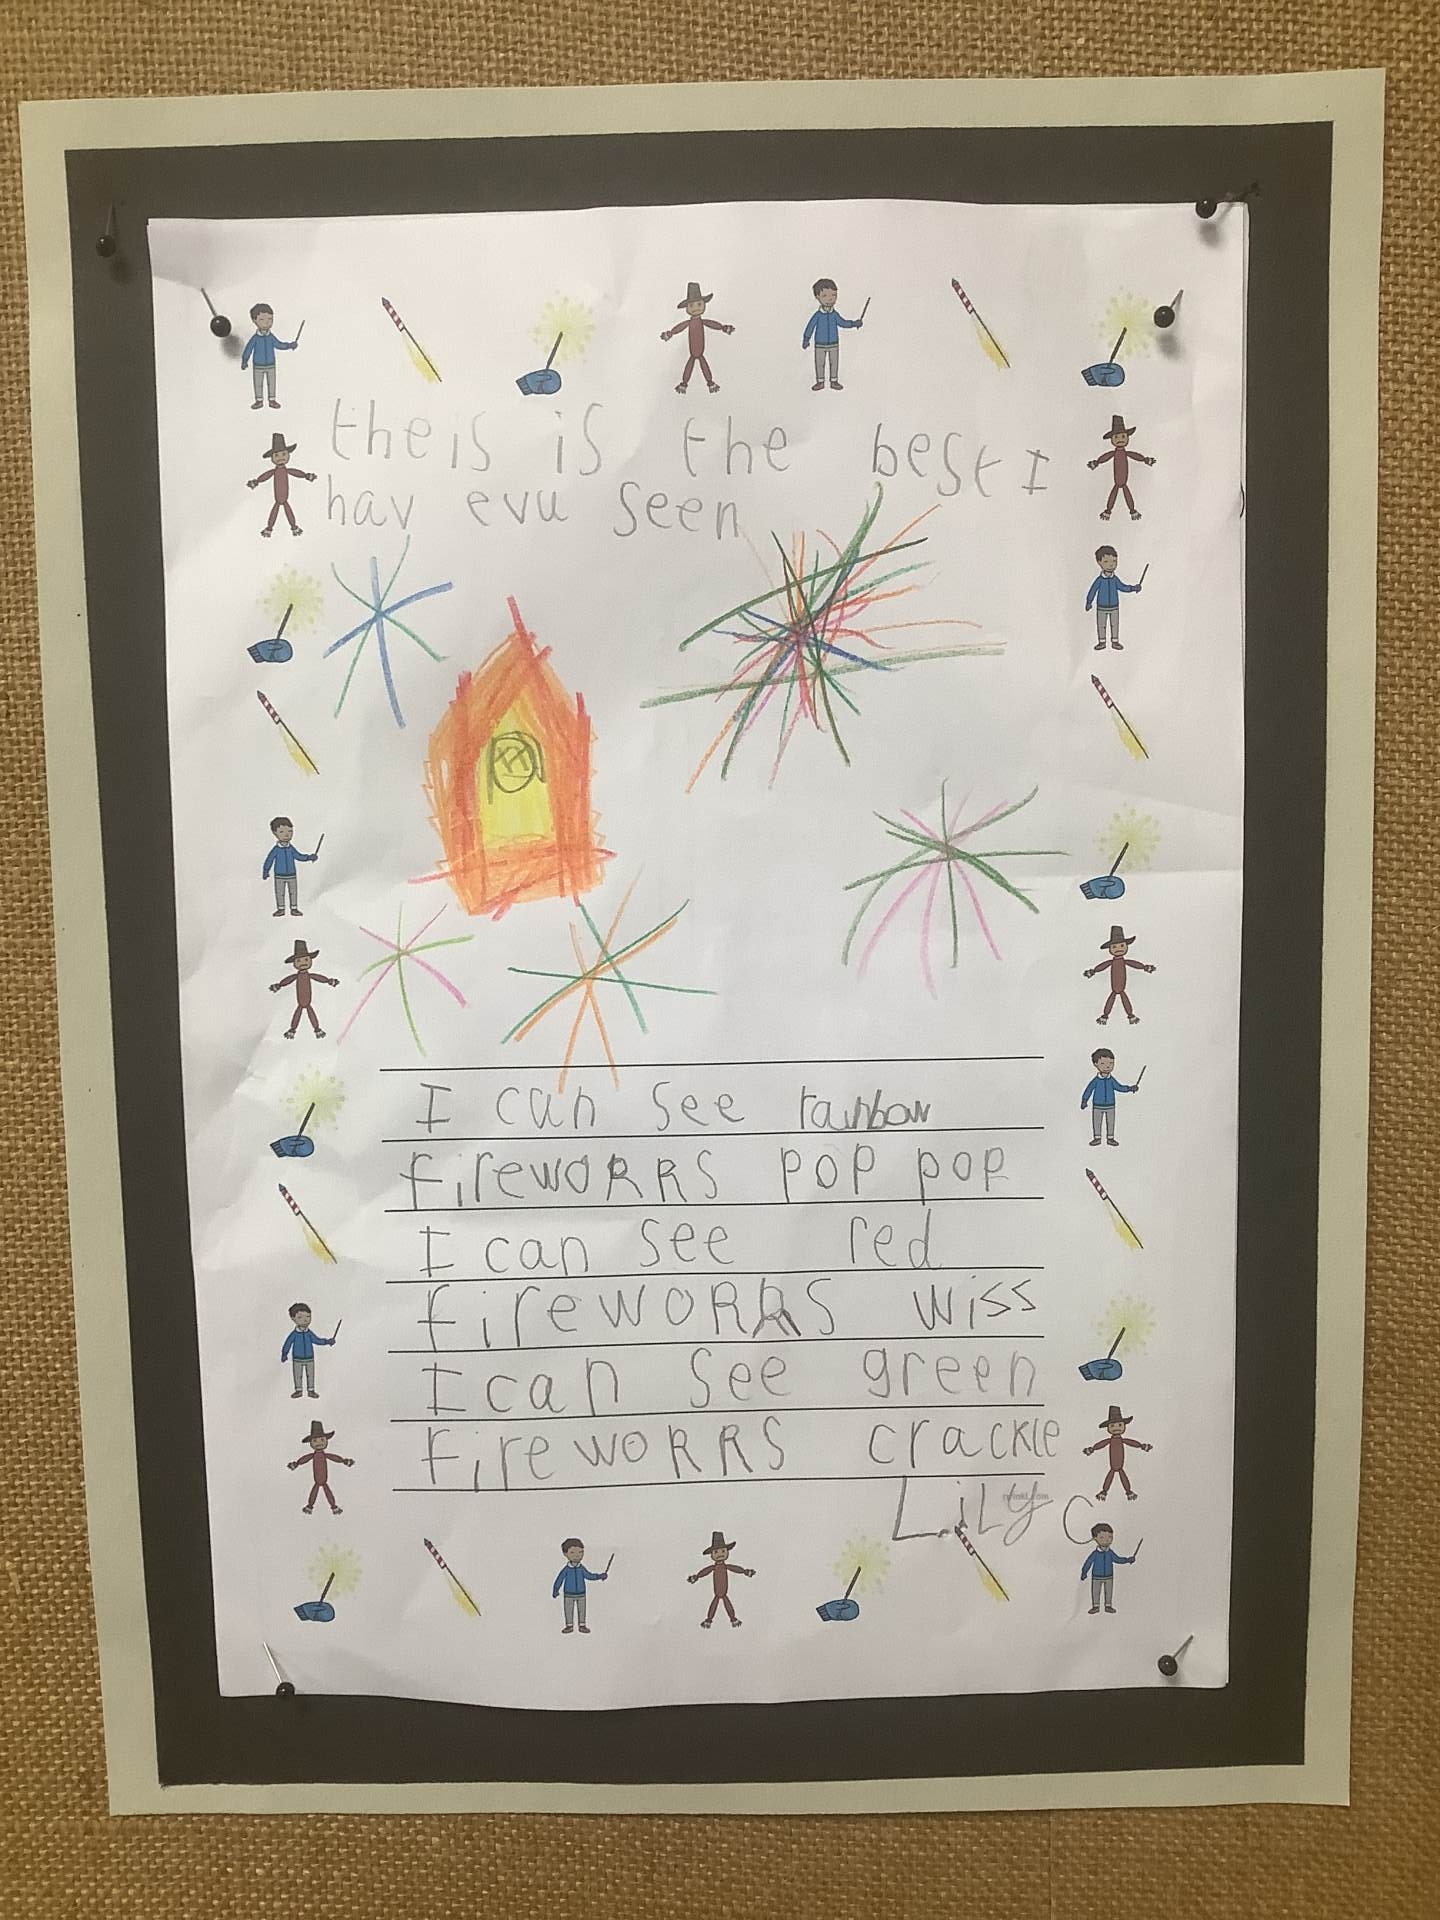 theis is the best I
hav evu seen
I can see rainbow
fireworks pop pop
I can see red
fireworks wiss
I can see green
fireworks crackle
Lily C